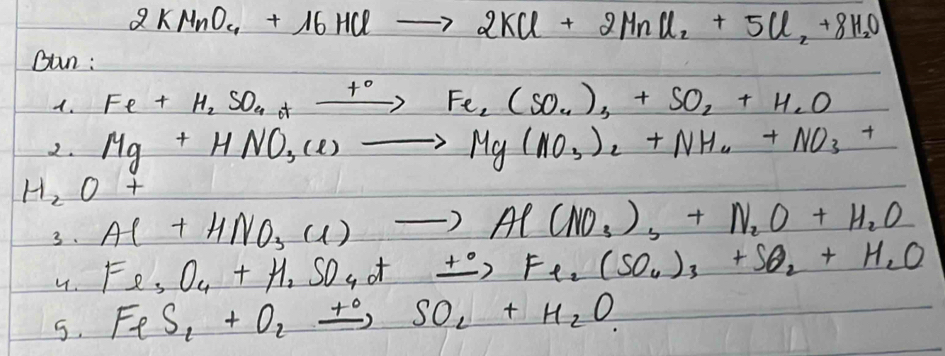 2KMnO₄ + 16 HCl → 2KCl + 2MnCl₂ + 5Cl₂ + 8H₂O
Ban :
1. Fe + H₂SO₄ đ —t°→ Fe₂(SO₄)₃ + SO₂ + H₂O
2. Mg + HNO₃(l) → Mg(NO₃)₂ + NH₄ + NO₃ +
H₂O +
3. Al + HNO₃(l) → Al(NO₃)₃ + N₂O + H₂O
4. Fe₃O₄ + H₂SO₄ đ —t°→ Fe₂(SO₄)₃ + SO₂ + H₂O
5. FeS₂ + O₂ —t°→ SO₂ + H₂O.